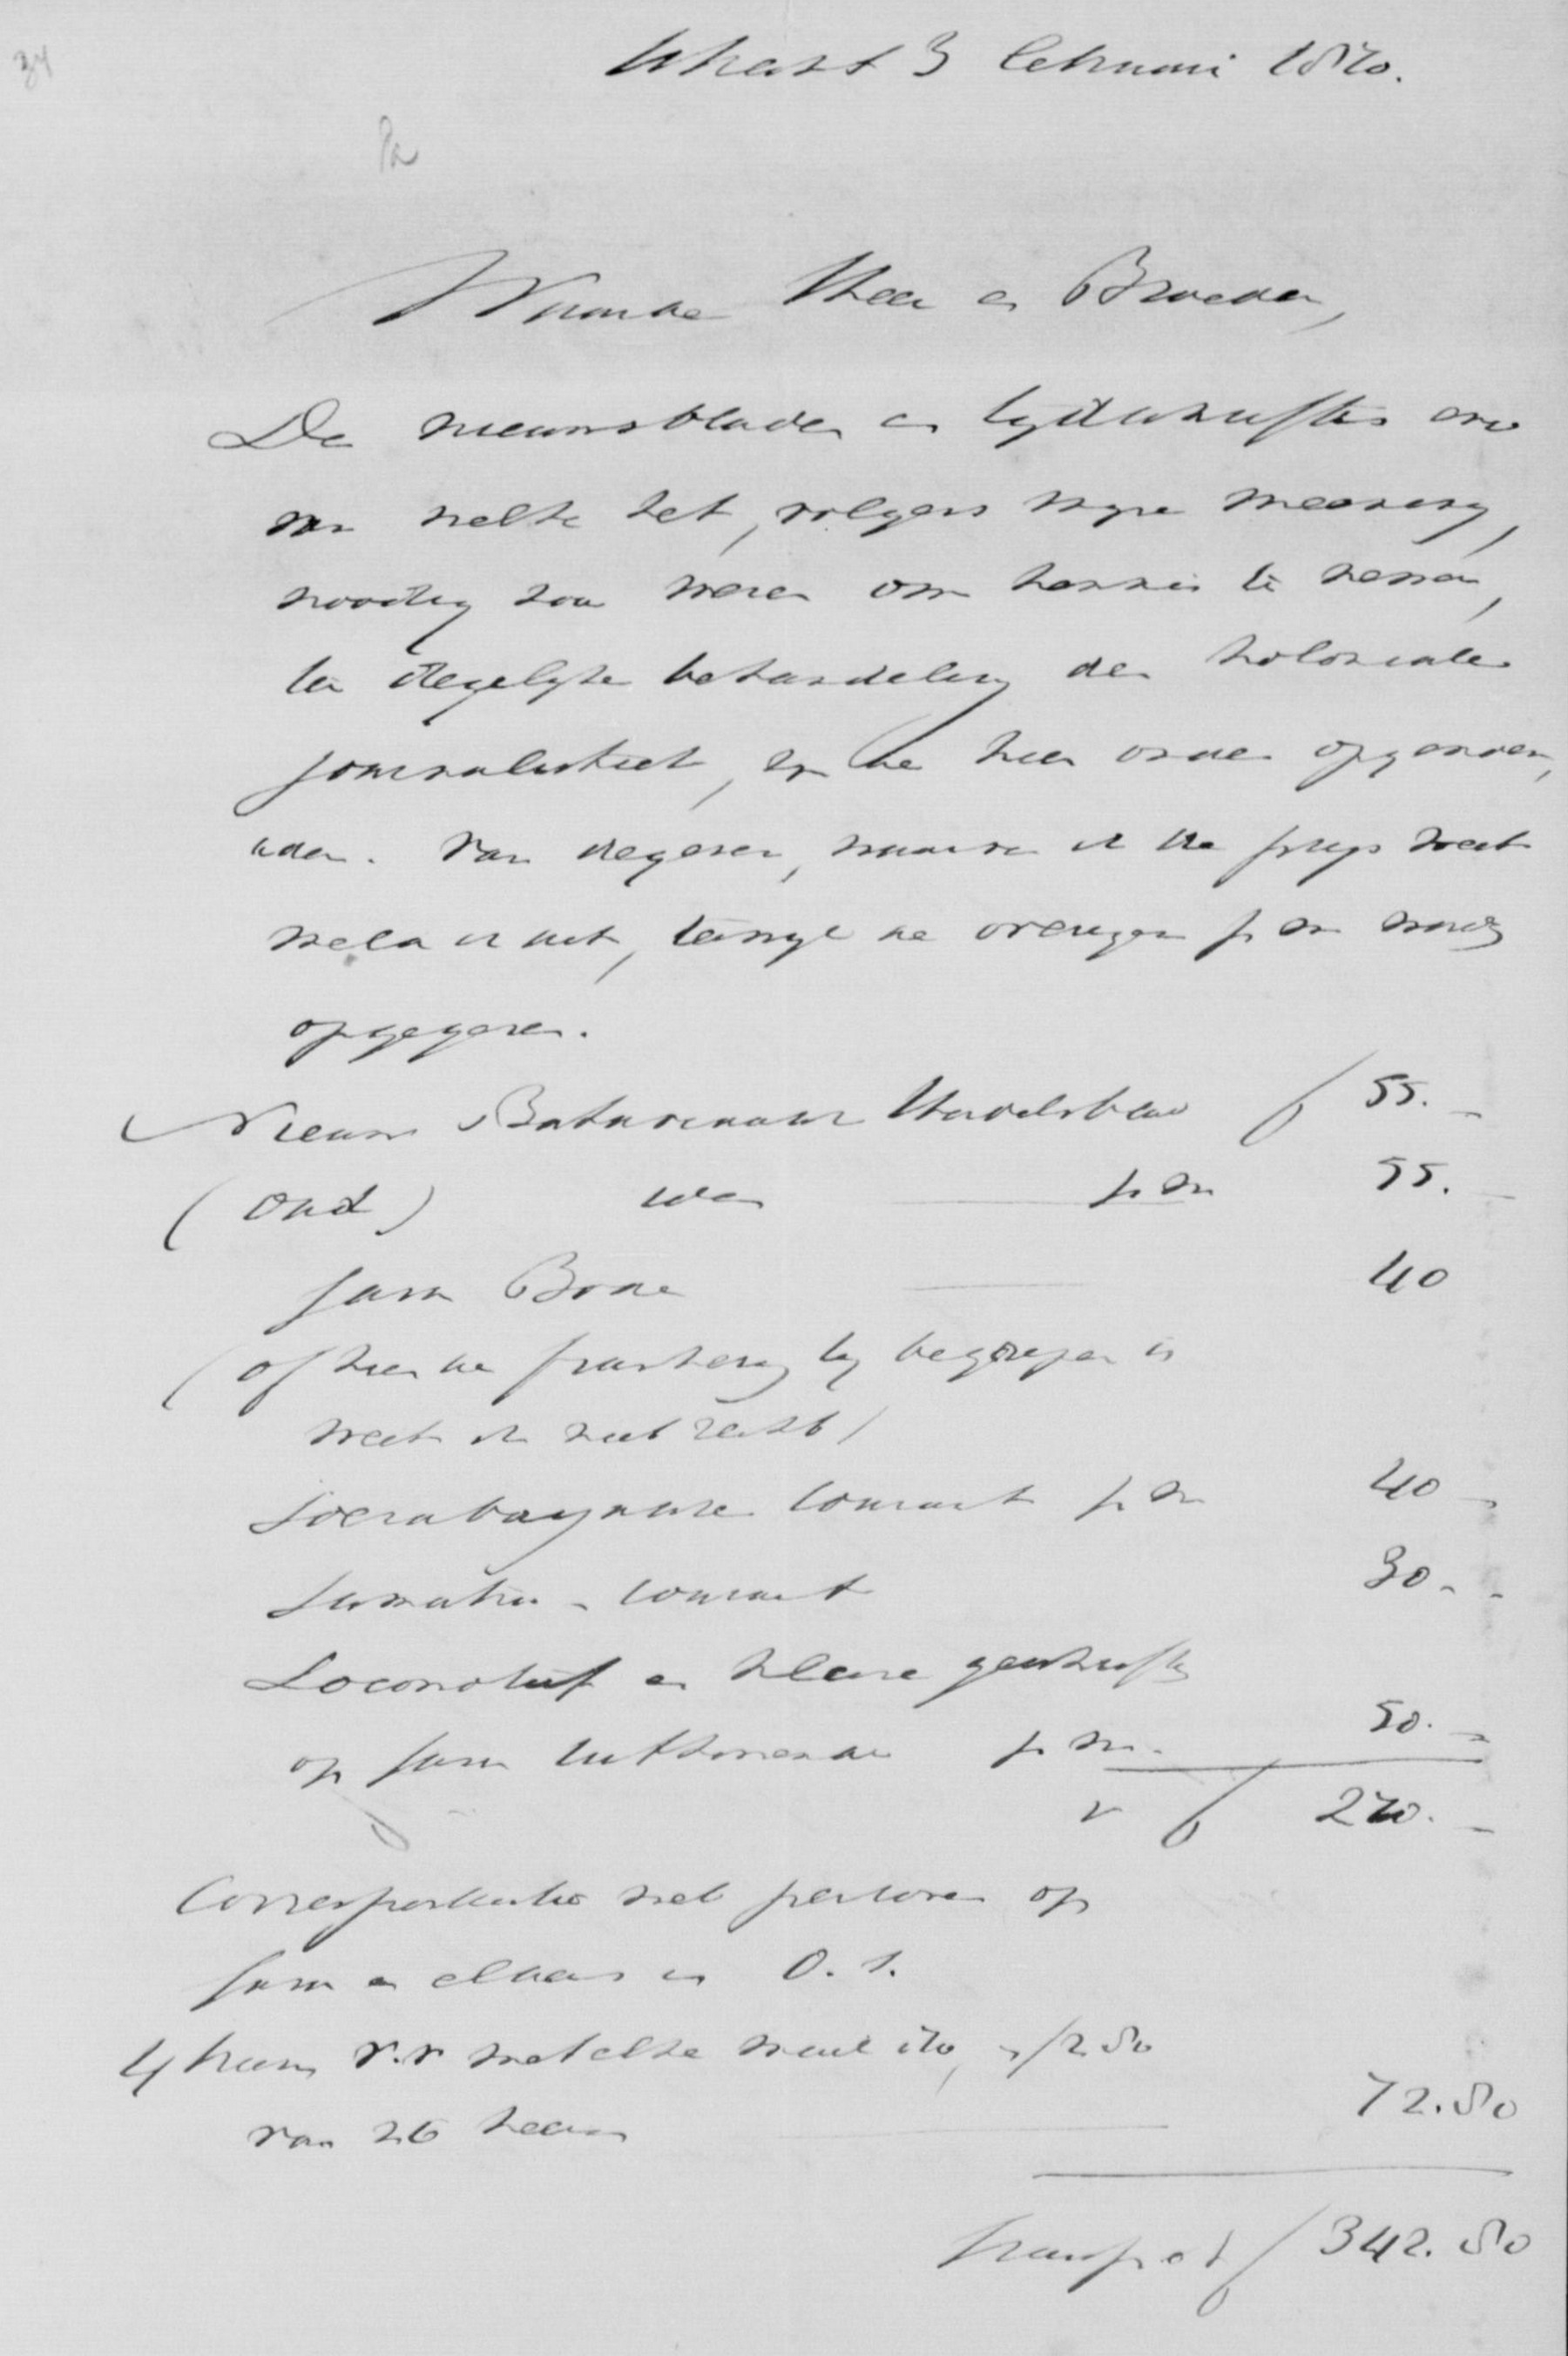 34
Utrecht 3 Februari 1870.
Pa
Waarde Heer en Broeder,
De nieuwsbladen en tijdschriften
van welke het, volgens mijne meening,
noodig zou wezen om kennis te nemen,
ter degelijke behandeling der koloniale
journalistiek, zijn de hier onder opgenoem,
den. Van degenen, waarvan ik de prijs weet
meld ik dit, terwijl de overigen p m
opgegeven.
Nieuw Bataviaasch Handelsblad f 55.-
(Oud) idem p m 55.-
Java Bode 40
(of hier de frankering bij begrepen is
weet ik niet recht)
Soerabayasche Courant p m 40 -
Sumatra - Courant 30.-
Locomotief en kleine geschriften
op Java uitkomende p m. 50.-
f 270.-
Correspondentie met personen op
Java en elders in O. I.
4 v.v met elke mail ito, f 2.80
van 26 72.80
Transport f 342.80